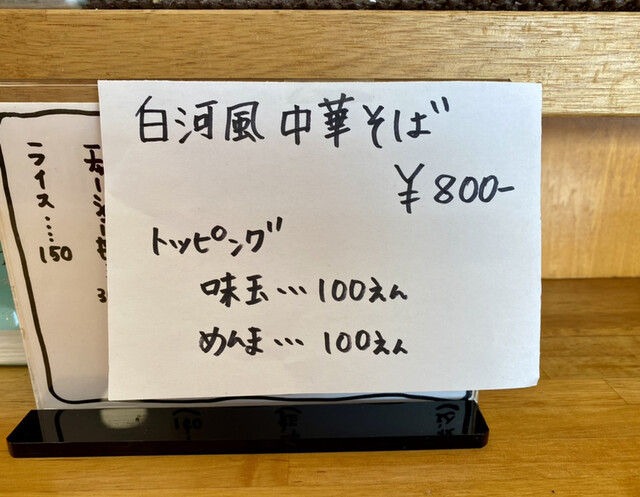 白河風 中華そば
¥800-
トッピング
味玉…100えん
めんま…100えん
ライス……150